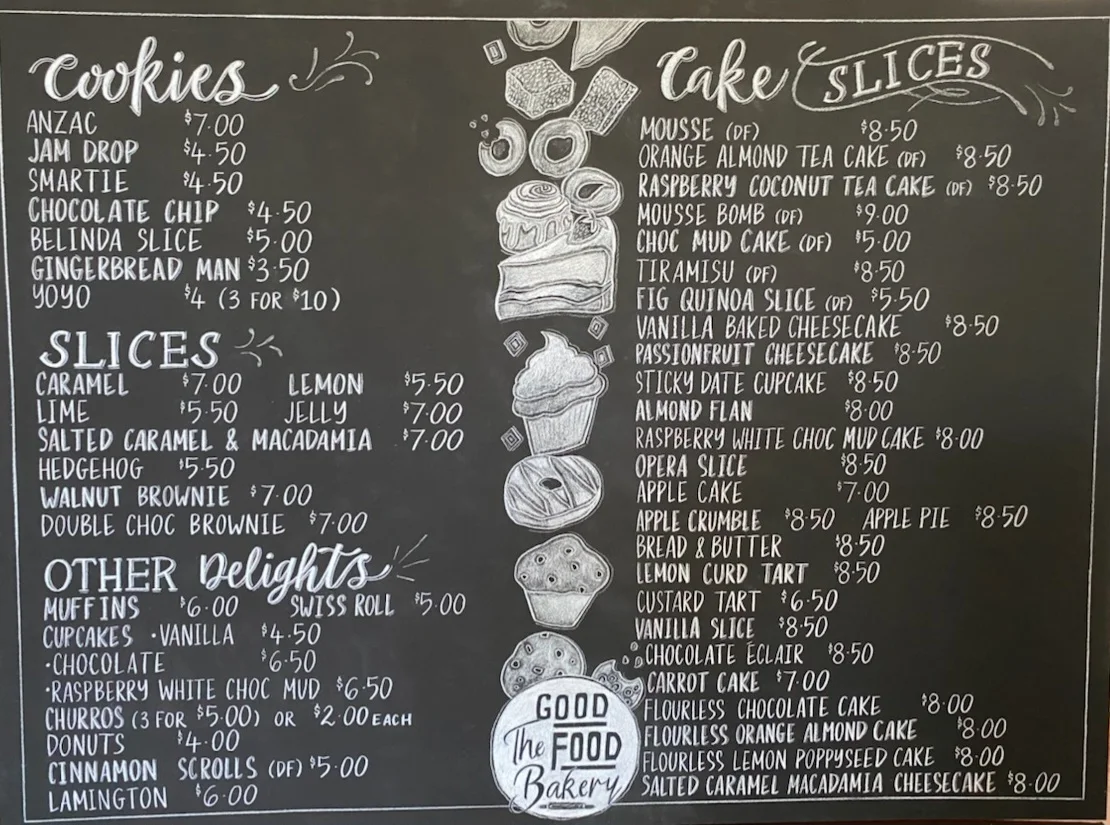 Cookies
ANZAC $7.00
JAM DROP $4.50
SMARTIE $4.50
CHOCOLATE CHIP $4.50
BELINDA SLICE $5.00
GINGERBREAD MAN $3.50
YOYO $4 (3 FOR $10)
SLICES
CARAMEL $7.00 LEMON $5.50
LIME $5.50 JELLY $7.00
SALTED CARAMEL & MACADAMIA $7.00
HEDGEHOG $5.50
WALNUT BROWNIE $7.00
DOUBLE CHOC BROWNIE $7.00
OTHER Delights
MUFFINS $6.00 SWISS ROLL $5.00
CUPCAKES •VANILLA $4.50
•CHOCOLATE $6.50
•RASPBERRY WHITE CHOC MUD $6.50
CHURROS (3 FOR $5.00) OR $2.00 EACH
DONUTS $4.00
CINNAMON SCROLLS (DF) $5.00
LAMINGTON $6.00
GOOD
The FOOD
Bakery
Cake SLICES
MOUSSE (DF) $8.50
ORANGE ALMOND TEA CAKE (DF) $8.50
RASPBERRY COCONUT TEA CAKE (DF) $8.50
MOUSSE BOMB (DF) $9.00
CHOC MUD CAKE (DF) $5.00
TIRAMISU (DF) $8.50
FIG QUINOA SLICE (DF) $5.50
VANILLA BAKED CHEESECAKE $8.50
PASSIONFRUIT CHEESECAKE $8.50
STICKY DATE CUPCAKE $8.50
ALMOND FLAN $8.00
RASPBERRY WHITE CHOC MUD CAKE $8.00
OPERA SLICE $8.50
APPLE CAKE $7.00
APPLE CRUMBLE $8.50 APPLE PIE $8.50
BREAD & BUTTER $8.50
LEMON CURD TART $8.50
CUSTARD TART $6.50
VANILLA SLICE $8.50
CHOCOLATE ÉCLAIR $8.50
CARROT CAKE $7.00
FLOURLESS CHOCOLATE CAKE $8.00
FLOURLESS ORANGE ALMOND CAKE $8.00
FLOURLESS LEMON POPPYSEED CAKE $8.00
SALTED CARAMEL MACADAMIA CHEESECAKE $8.00